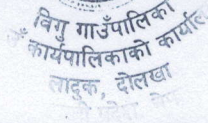 विगु गाउँपालिका
कार्यपालिकाको कार्याल
लादुक, दोलखा